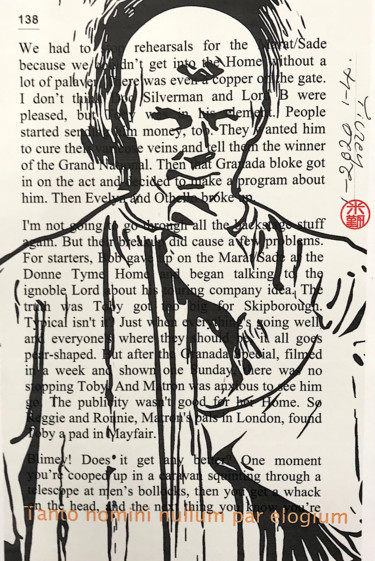 138
We had to stop rehearsals for the Marat/Sade
because we couldn't get into the Home without a
lot of palaver. There was even a copper on the gate.
I don't think Silverman and Lord B were
pleased, but Toby was in his element. People
started sending him money, too. They wanted him
to cure their varicose veins and tell them the winner
of the Grand National. Then that Granada bloke got
in on the act and decided to make a program about
him. Then Evelyn and Othello broke up.
I'm not going to go through all the backstage stuff
again. But their break up did cause a few problems.
For starters, Bob gave up on the Marat/Sade at the
Donne Tyme Home and began talking to the
ignoble Lord about his touring company idea. The
truth was Toby got too big for Skipborough.
Typical isn't it? Just when everything's going well
and everyone's where they should be, it all goes
pear-shaped. But after the Granada Special, filmed
in a week and shown one Sunday, there was no
stopping Toby. And Matron was anxious to see him
go. The publicity wasn't good for her Home. So
Reggie and Ronnie, Matron's pals in London, found
Toby a pad in Mayfair.
Blimey! Does it get any better? One moment
you're cooped up in a caravan squinting through a
telescope at men's bollocks, then you get a whack
on the head, and the next thing you know you're
Tanto nomini nullum par elogium